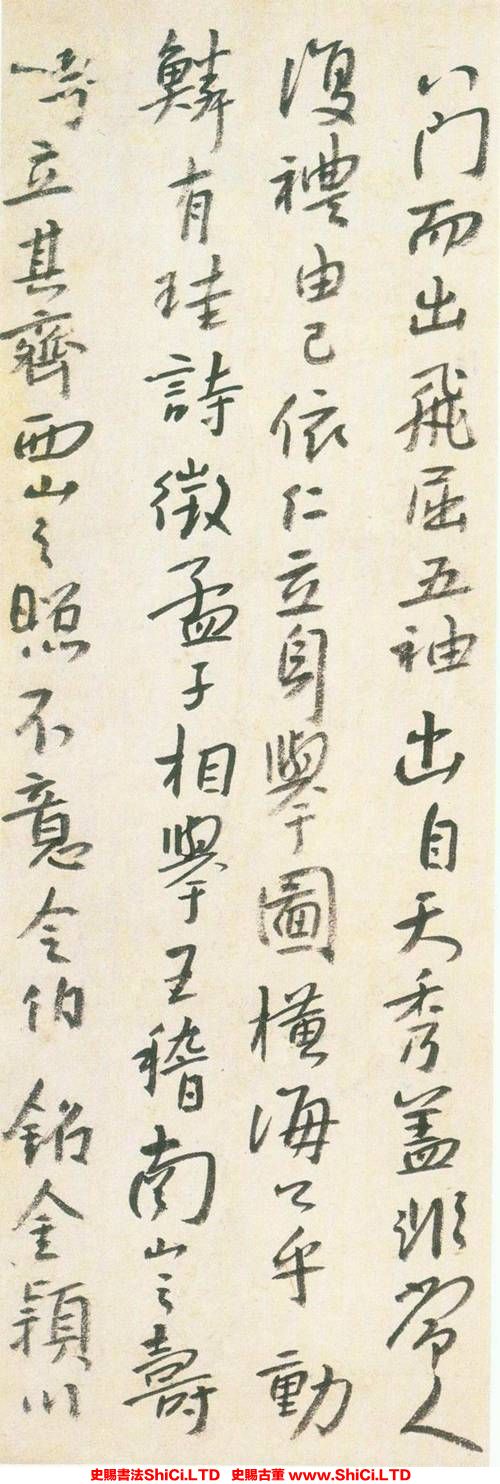 門而出飛屈五袖出自天秀蓋非常人
復禮由己依仁立身學圖橫海公乎動
鱗有珪詩徵孟子相學王稽南山之壽
立其齊西山之照不意令伯銘金穎川
史賜書法ShiCi.LTD 史賜古董 www.ShiCi.LTD